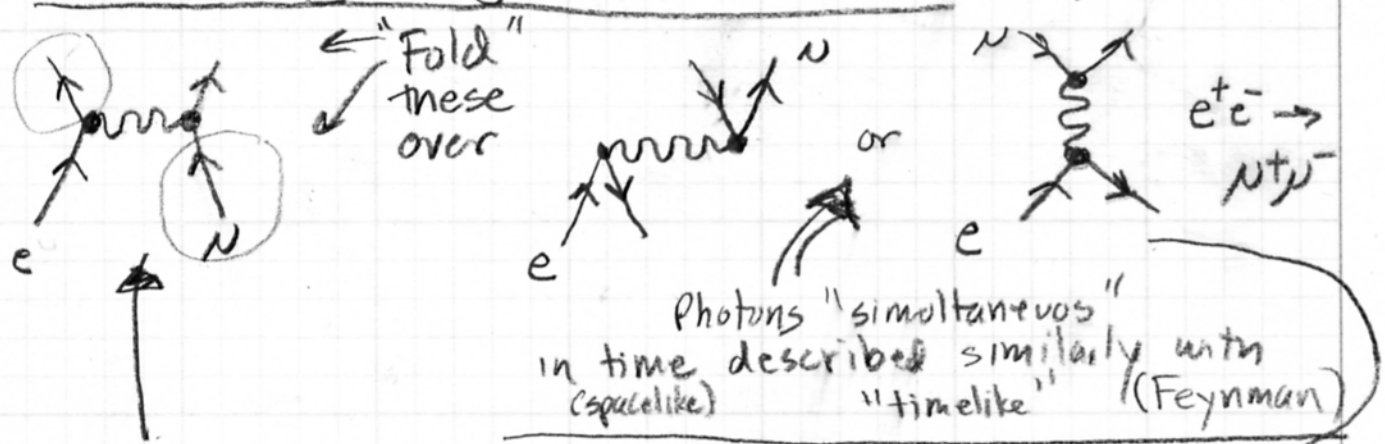 "Fold"
these
over
e
μ
e
μ
or
μ
e
e⁺e⁻ →
μ⁺μ⁻
Photons "simultaneuos"
in time described similarly with
(spacelike) "timelike" (Feynman)